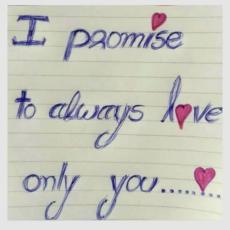 I promise
to always love
only you........